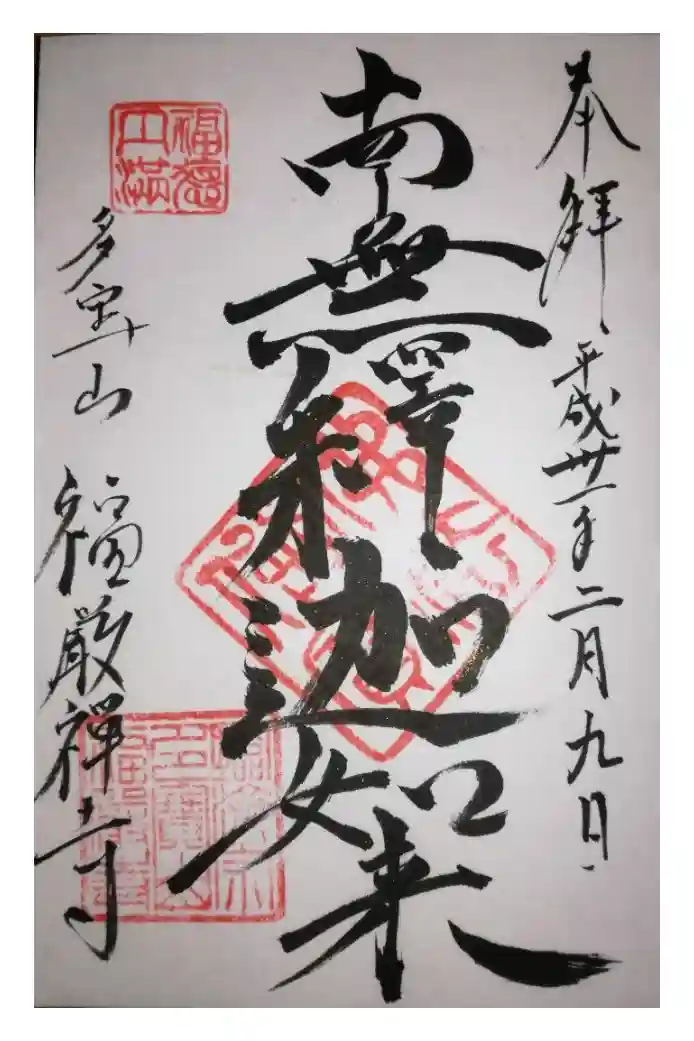 奉拝 平成卅一年二月九日
南無釋迦如来
福徳円満
多宝山 福厳禅寺